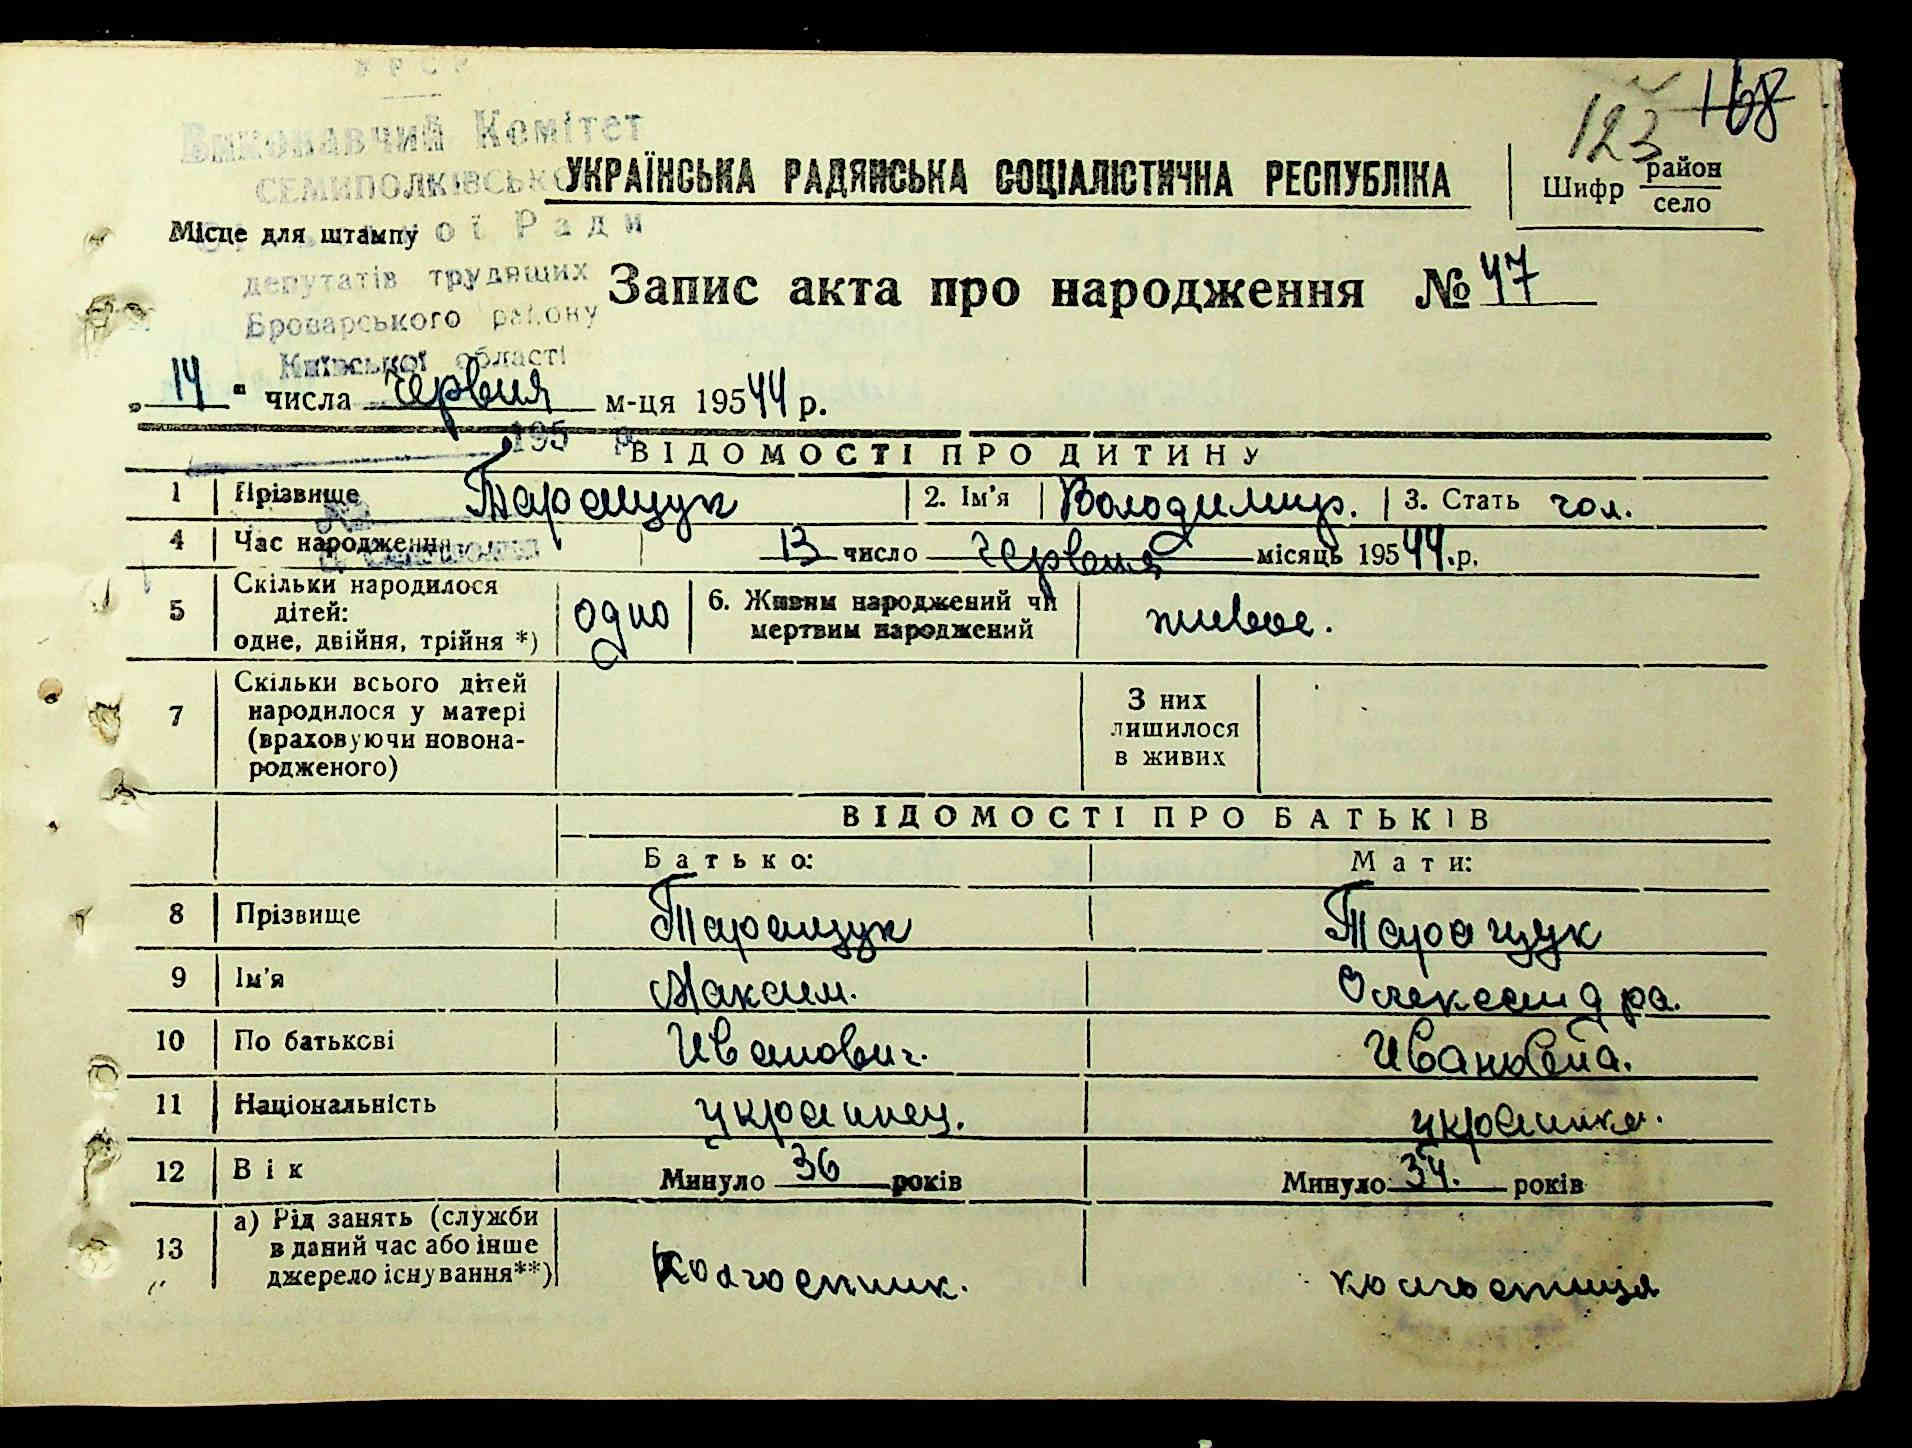 УРСР
168
123
Виконавчий Комітет
СЕМИПОЛКІВСЬКОЇ
УКРАЇНСЬКА РАДЯНСЬКА СОЦІАЛІСТИЧНА РЕСПУБЛІКА
Шифр район
село
Місце для штампу
Ради
депутатів трудящих
Запис акта про народження № 47
Броварського району
Київської області
„14" числа червня м-ця 195 44 р.
195 р.
ВІДОМОСТІ ПРО ДИТИНУ
1 Прізвище Таращук 2. Ім'я Володимир. 3. Стать чол.
4 Час народження 13 число червня місяць 195 44.р.
5 Скільки народилося дітей: одне, двійня, трійня *) одно 6. Живим народжений чи мертвим народжений живое.
7 Скільки всього дітей народилося у матері (враховуючи новона-родженого) З них лишилося в живих
ВІДОМОСТІ ПРО БАТЬКІВ
Батько: Мати:
8 Прізвище Таращук Таращук
9 Ім'я Максим. Олександра.
10 По батькові Иванович. Ивановна.
11 Національність украинец. украинка.
12 Вік Минуло 36 років Минуло 34. років
13 а) Рід занять (служби в даний час або інше джерело існування**) Колгоспник. колгоспниця